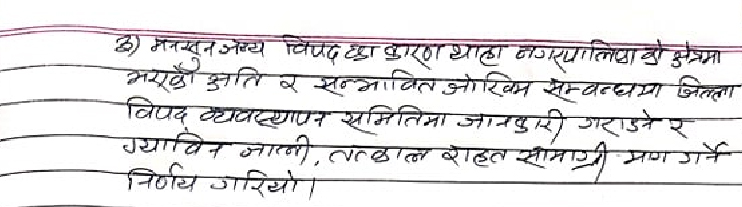 ३) मनसुन जन्य विपदका कारण थाहा नगरपालिका को क्षेत्रमा
भएको क्षति र सम्भावित जोखिम सम्बन्धमा जिल्ला
विपद व्यवस्थापन समितिमा जानकारी गराउने र
ग्याविन जाली, तत्काल राहत सामाग्री माग गर्ने
निर्णय गरियो।